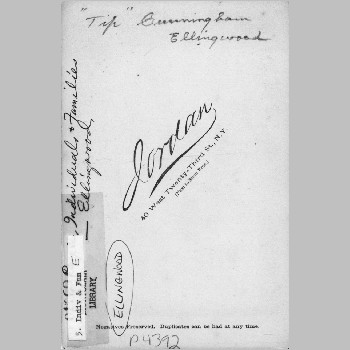 "Tip" Cunningham
Ellingwood
Individuals & Families
— Ellingwood,
Jordan
40 West Twenty-Third St., N.Y.
5. Indiv & Fam E
LIBRARY
ELLINGWOOD
Negatives Preserved. Duplicates can be had at any time.
P4392